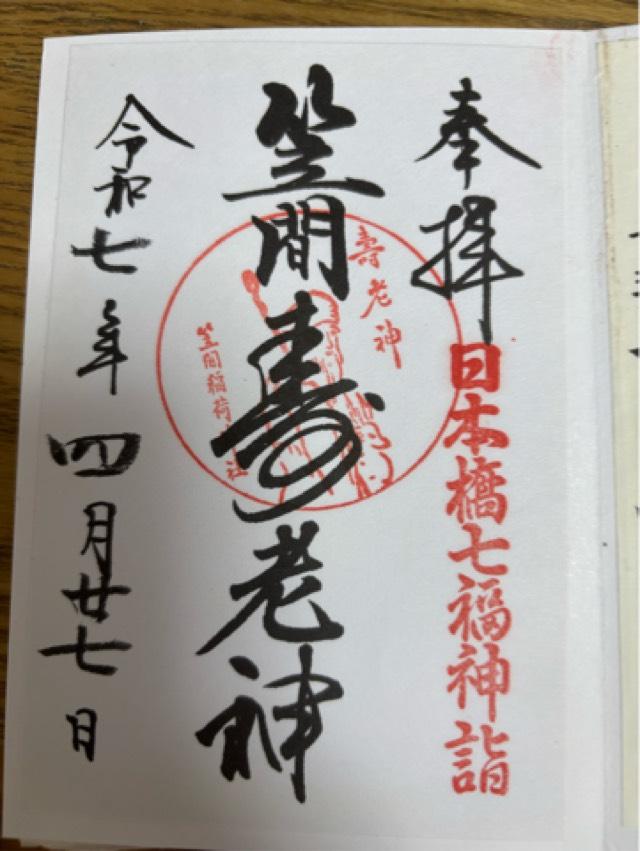 奉拝
日本橋七福神詣
笠間寿老神
壽老神
笠間稲荷神社
令和七年四月廿七日